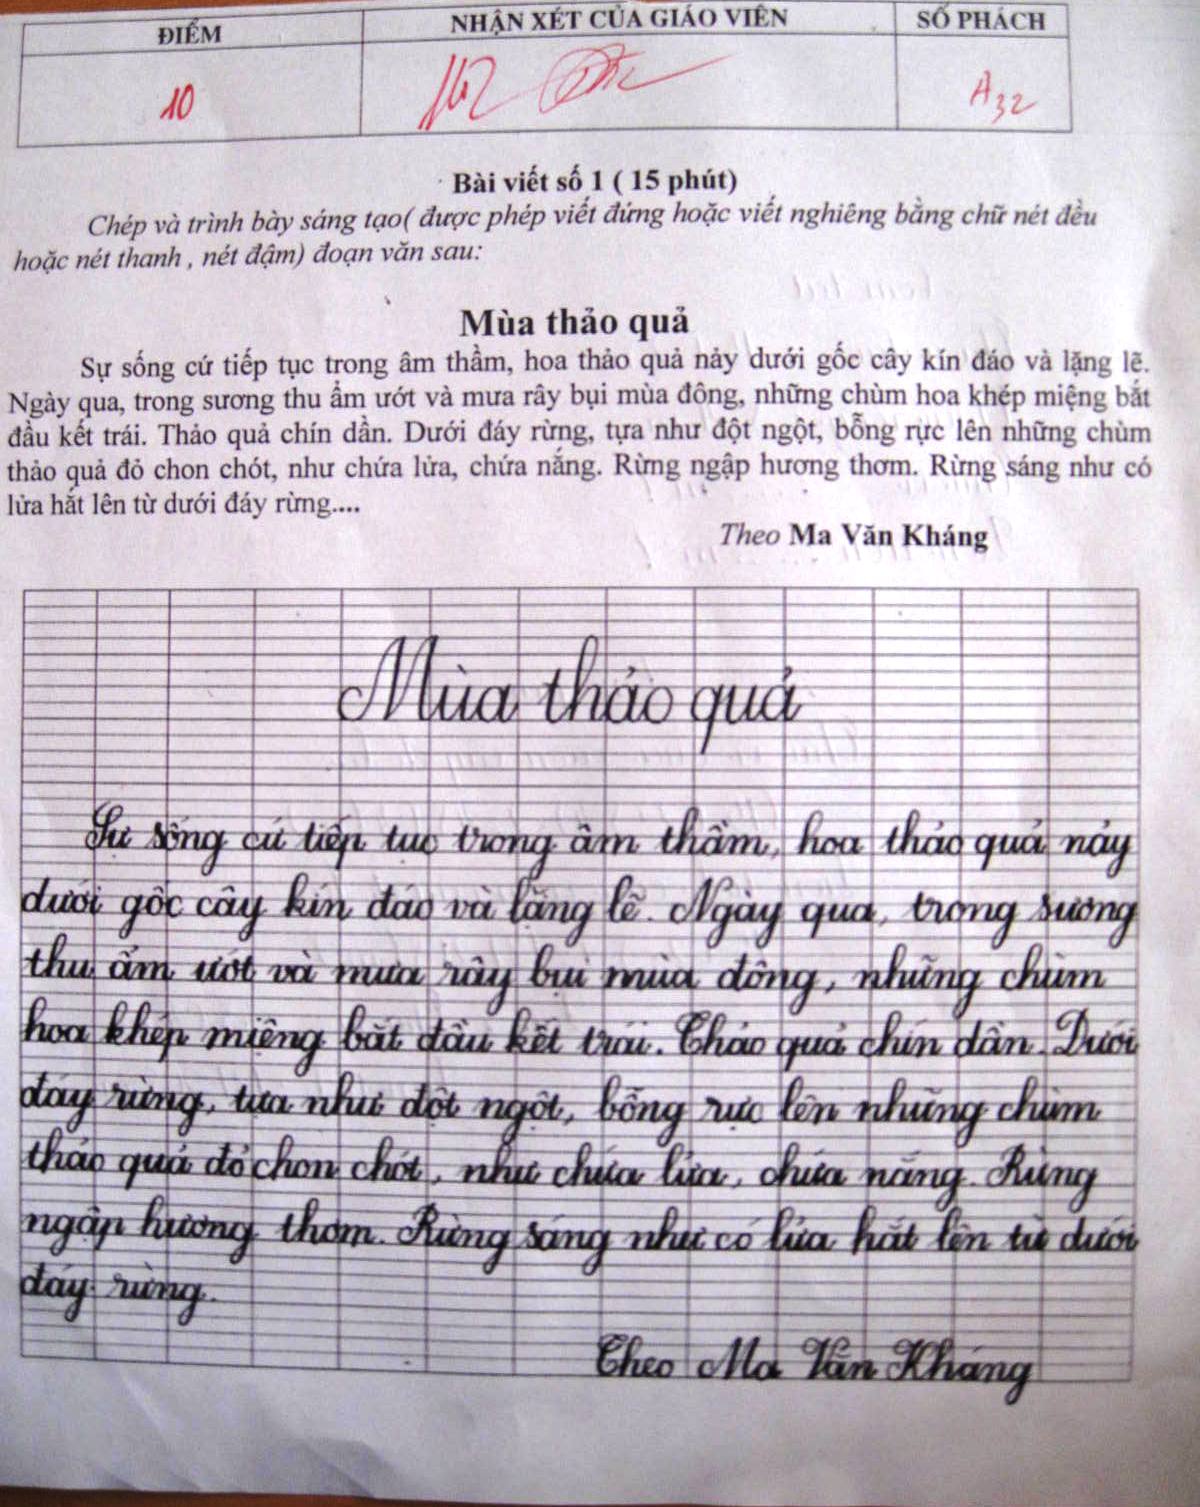 ĐIỂM NHẬN XÉT CỦA GIÁO VIÊN SỐ PHÁCH
10 A32
Bài viết số 1 ( 15 phút)
Chép và trình bày sáng tạo( được phép viết đứng hoặc viết nghiêng bằng chữ nét đều
hoặc nét thanh , nét đậm) đoạn văn sau:
Mùa thảo quả
Sự sống cứ tiếp tục trong âm thầm, hoa thảo quả nảy dưới gốc cây kín đáo và lặng lẽ.
Ngày qua, trong sương thu ẩm ướt và mưa rây bụi mùa đông, những chùm hoa khép miệng bắt
đầu kết trái. Thảo quả chín dần. Dưới đáy rừng, tựa như đột ngột, bỗng rực lên những chùm
thảo quả đỏ chon chót, như chứa lửa, chứa nắng. Rừng ngập hương thơm. Rừng sáng như có
lửa hắt lên từ dưới đáy rừng....
Theo Ma Văn Kháng
Mùa thảo quả
Sự sống cứ tiếp tục trong âm thầm, hoa thảo quả nảy
dưới gốc cây kín đáo và lặng lẽ. Ngày qua, trong sương
thu ẩm ướt và mưa rây bụi mùa đông, những chùm
hoa khép miệng bắt đầu kết trái. Thảo quả chín dần. Dưới
đáy rừng, tựa như đột ngột, bỗng rực lên những chùm
thảo quả đỏ chon chót, như chứa lửa, chứa nắng. Rừng
ngập hương thơm. Rừng sáng như có lửa hắt lên từ dưới
đáy rừng.
Theo Ma Văn Kháng